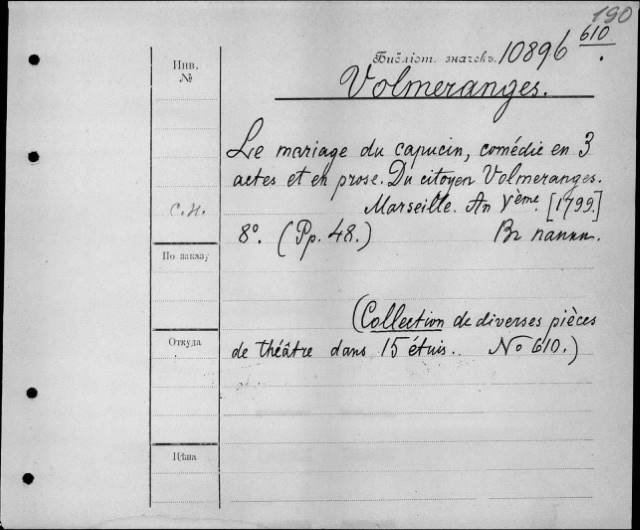 190
610
Библіот. значекъ. 10896
Инв.
№
Volmeranges.
Le mariage du capucin, comédie en 3
actes et en prose. Du citoyen Volmeranges.
Marseille. An Vème. [1799.]
С.Н.
8°. (Pp. 48.) Вг папки.
По заказу
(Collection de diverses pièces
Откуда
de théâtre dans 15 étuis. No 610.)
Цѣна